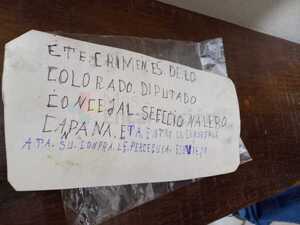 ETE CRIMEN ES. DE LO
COLORADO. DIPUTADO
CONCEJAL. SECCIONALERO
CAPANA. ETA
ATA. SU. CONPRA. LE